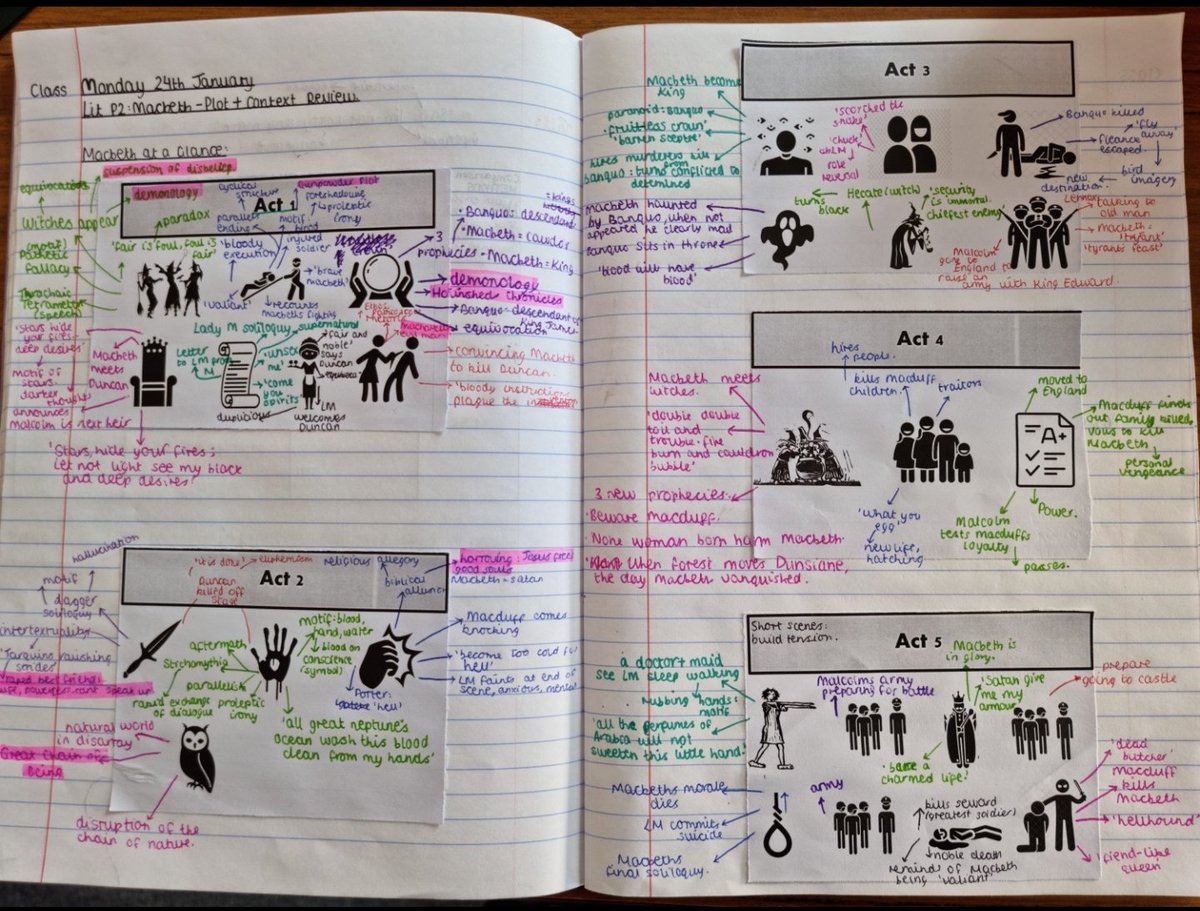 Class Monday 24th January
Lit P2: Macbeth - Plot + Context Review.
Macbeth at a Glance:
suspension of disbelief
equivocation
demonology
Act 1
Witches appear
paradox
'fair is foul, foul is
fair'
(motif)
Pathetic
fallacy
Trochaic
Tetrameter
(speech)
cyclical
structure
parallel
ending
gunpowder plot
foreshadowing
proleptic
irony
motif:
blood
injured
soldier
'bloody
execution'
'brave
macbeth'
'valiant'
recounts
macbeths fighting
3
prophecies - Macbeth = King
• Banquo: descendant
= kings
• Macbeth = cawdor
demonology
Holinshed Chronicles
Banquo = descendant of
King James
equivocation
'Stars hide
your fires -
deep desires'
motif of
stars.
announces
malcolm is next heir
Macbeth
meets
Duncan
'Stars, hide your fires;
Let not light see my black
and deep desires.'
Letter
to LM from
M
Lady M soliloquy
supernatural
'unsex
me'
'come
you
spirits'
duplicious
'fair and
noble'
says
Duncan
LM
welcomes
Duncan
convincing Macbeth
to kill Duncan.
'bloody instructions
plague the
Act 2
hallucination
motif
dagger
soliloquy
intertextuality
'Tarquins ravishing
strides'
'it is done'
euphemism
Duncan
killed off
stage
aftermath
Stichomythia
rapid exchange
of dialogue
parallelism
proleptic
irony
motif: blood,
hand, water
blood on
conscience
(symbol)
'all great neptune's
ocean wash this blood
clean from my hands'
religious allegory
biblical
allusion
Macbeth = satan
Macduff comes
knocking
'become too cold for
hell'
LM faints at end of
scene, anxious, mental
Porter:
natural world
in disarray
Great Chain of
Being
disruption of the
chain of nature.
Act 3
Macbeth become
King
paranoid: Banquo
'fruitless crown'
'barren sceptre'
hires murderers kill
banquo: turns conflicted to
determined
'scorched the
snake'
'chuck'
role
reversal
Banquo killed
fleance
escaped.
'fly
away'
bird
imagery
new
destination.
Macbeth haunted
by Banquo, when not
appeared he clearly mad
Banquo sits in throne
'blood will have
blood'
turns
black
Hecate (witch)
'security
is immortal.
chiefest enemy'
Lennox
talking to
old man
Macbeth =
'tyrant'
'tyrants feast'
Malcolm
gone to
England to
raise an
army with King Edward.
Act 4
Macbeth meets
witches.
'double double
toil and
trouble. fire
burn and cauldron
bubble'
3 new prophecies.
• Beware macduff.
• None woman born harm Macbeth.
• When forest moves Dunsiane,
the day macbeth vanquished.
hires
people.
kills macduff
children.
traitors
'What, you
egg'
new life,
hatching
A+
moved to
England
Macduff finds
out family killed
vows to kill
Macbeth
personal
vengeance
Malcolm
tests macduffs
loyalty
passes.
Power.
Short scenes:
build tension.
Act 5
a doctor + maid
see LM sleep walking
rubbing hands:
motif
'all the perfumes of
Arabia will not
sweeten this little hand'
Malcolms army
preparing for battle
Macbeth is
in glory.
'Satan give
me my
armour'
'bare a
charmed life'
prepare
going to castle
Macbeths morale
dies
LM commits
suicide
Macbeths
final soliloquy.
army
kills seward
(greatest soldier)
noble death
reminds of Macbeth
being 'valiant'
'dead
butcher'
Macduff
kills
Macbeth
'hellhound'
'fiend-like
queen